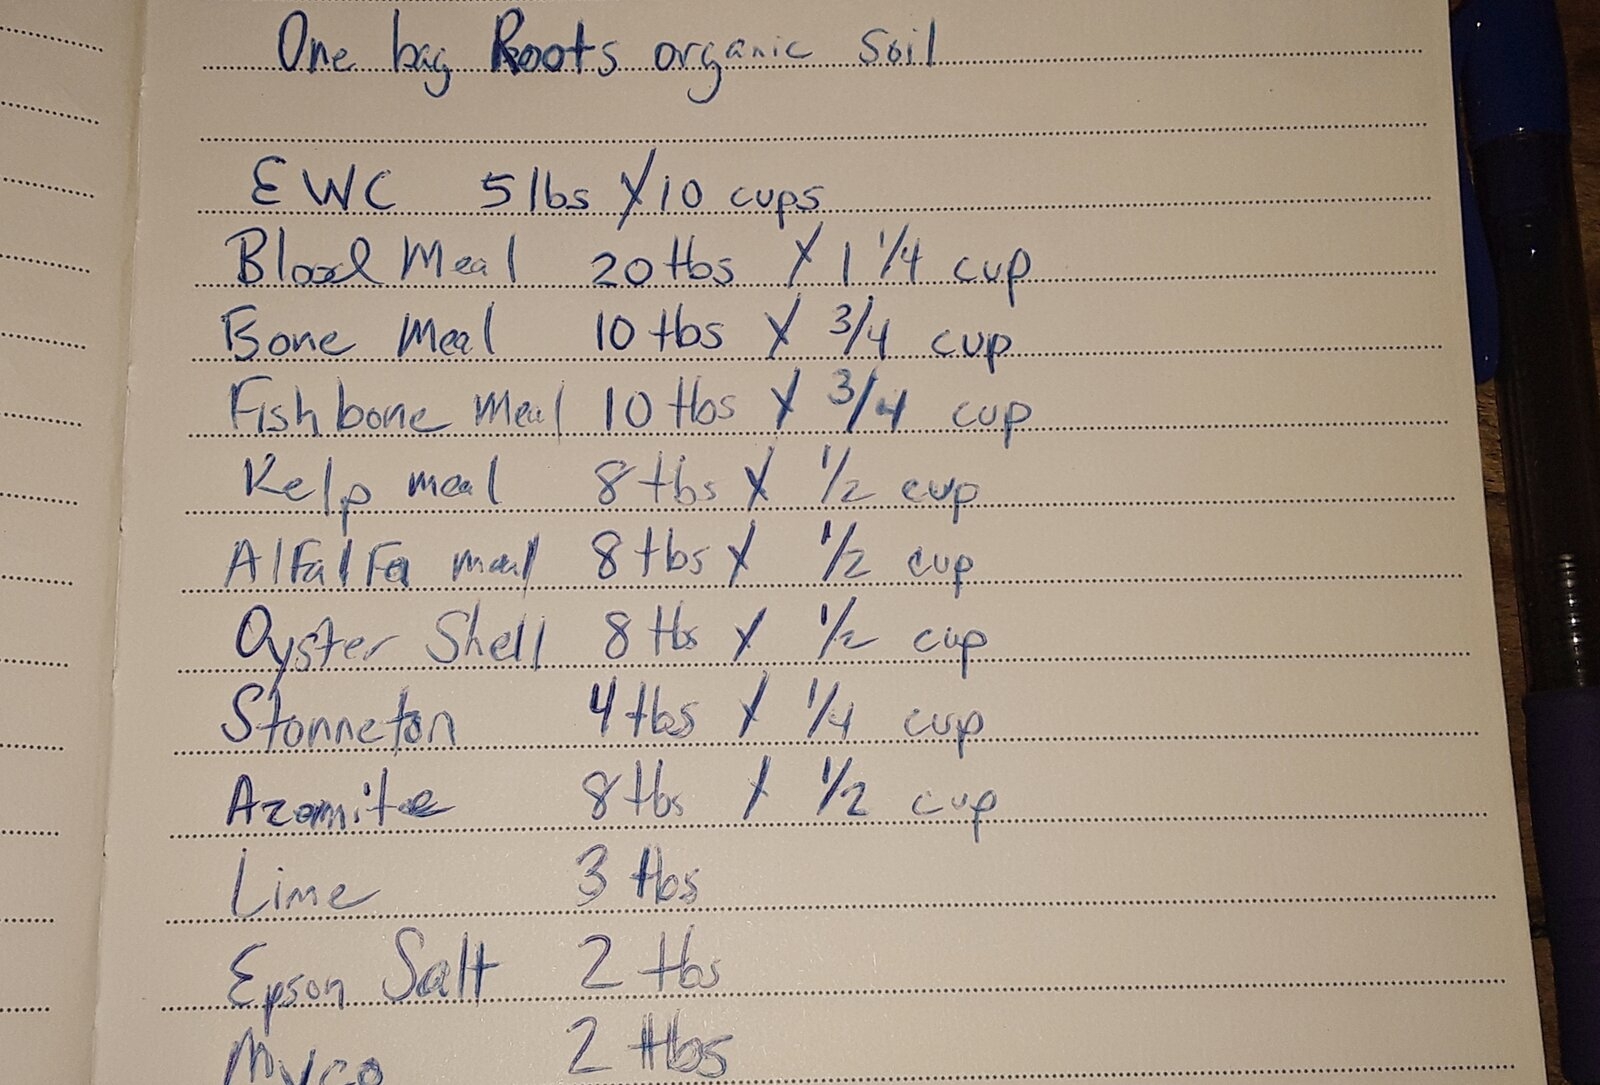 One bag Roots organic soil
EWC 5 lbs / 10 cups
Blood Meal 20 tbs / 1 1/4 cup
Bone Meal 10 tbs / 3/4 cup
Fishbone Meal 10 tbs / 3/4 cup
Kelp meal 8 tbs / 1/2 cup
AlFalFa meal 8 tbs / 1/2 cup
Oyster Shell 8 tbs / 1/2 cup
Stonneton 4 tbs / 1/4 cup
Azomite 8 tbs / 1/2 cup
Lime 3 tbs
Epson Salt 2 tbs
Myco 2 tbs